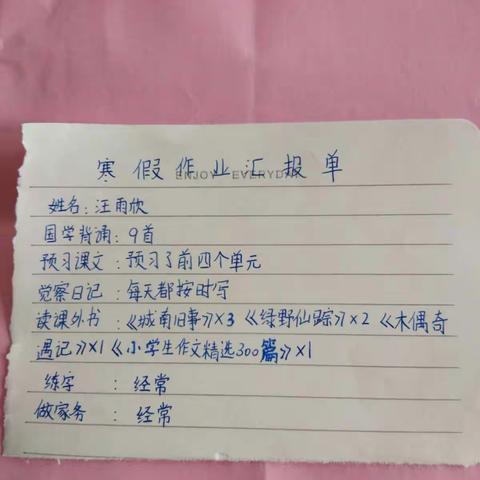 寒假作业汇报单
ENJOY EVERYDAY
姓名：汪雨欣
国学背诵：9首
预习课文：预习了前四个单元
觉察日记：每天都按时写
读课外书：《城南旧事》×3《绿野仙踪》×2《木偶奇
遇记》×1《小学生作文精选300篇》×1
练字：经常
做家务：经常